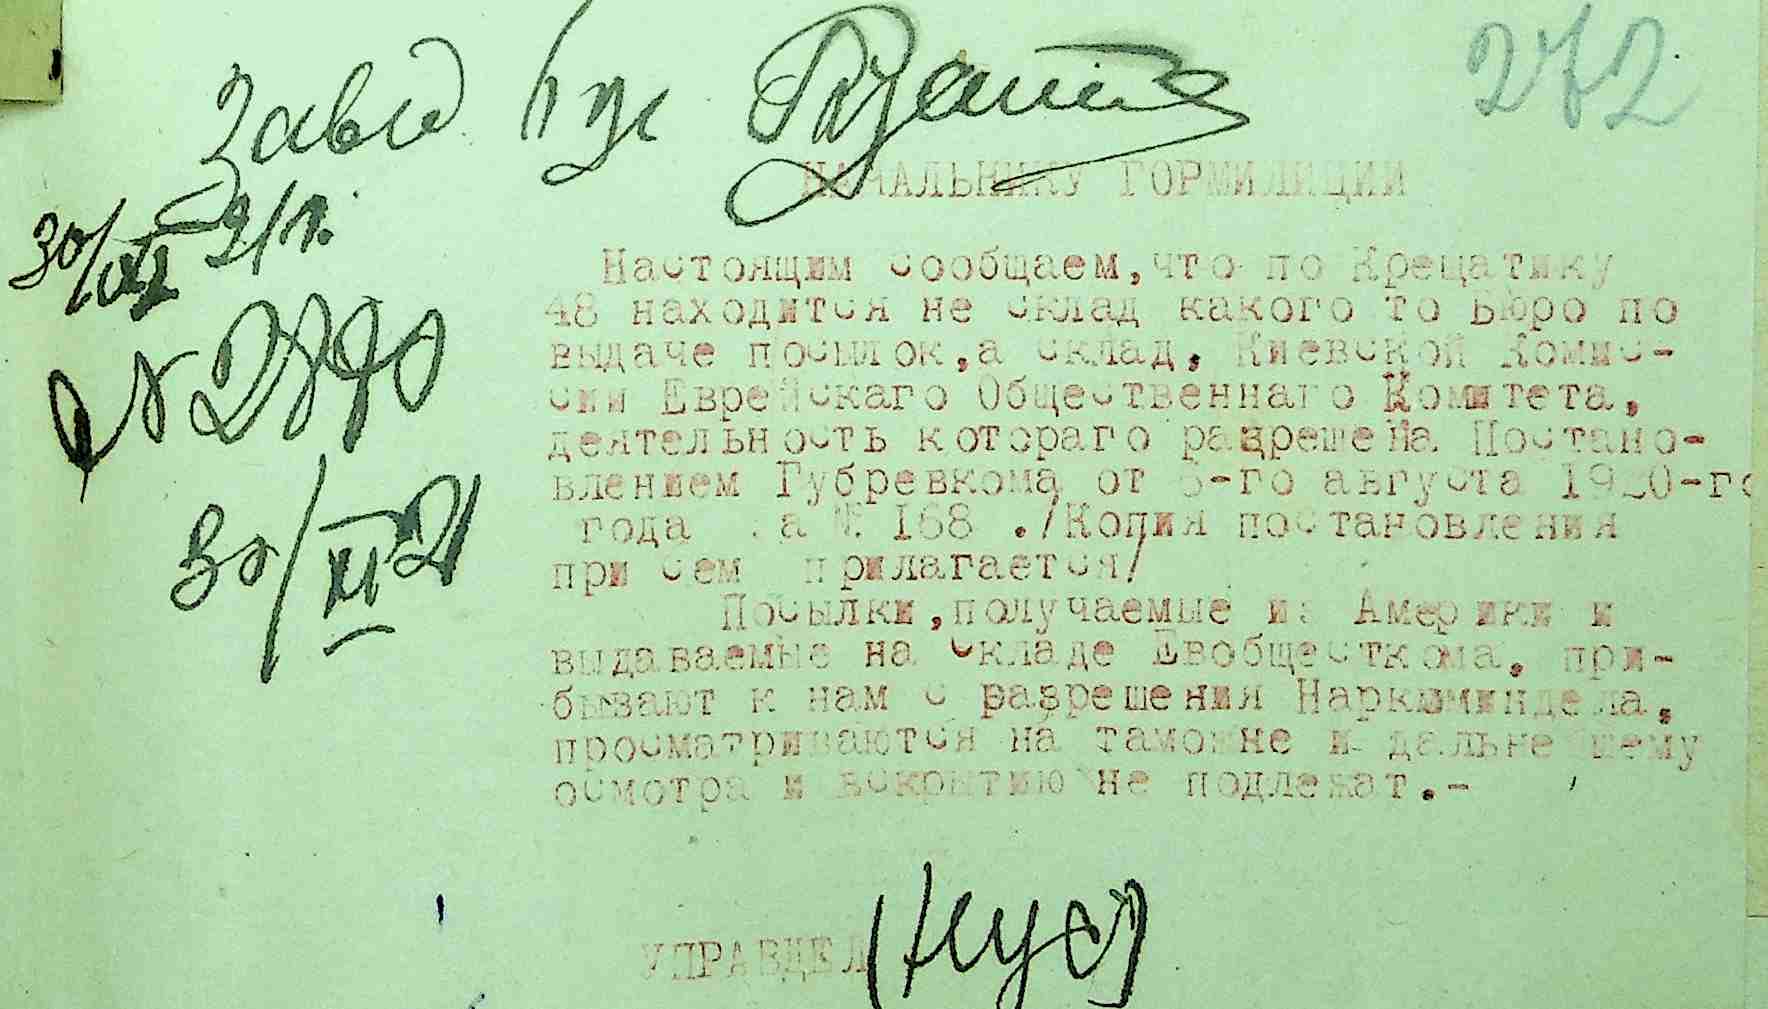 272
Завід
НАЧАЛЬНИКУ ГОРМИЛИЦИИ
30/XI 21 г.
Настоящим сообщаем,что по Крещатику
48 находится не склад какого то Бюро по
выдаче посылок,а склад, Киевской Комис-
сии Еврейскаго Общественнаго Комитета,
деятельность котораго разрешена Постано-
влением Губревкома от 5-го августа 1920-го
года за № 168 ./Копия постановления
при сем прилагается/
Посылки,получаемые из Америки и
выдаваемые на складе Евобщесткома, при-
бывают к нам с разрешения Наркоминдела,
просматриваются на таможне и дальнейшему
осмотра и вскрытию не подлежат.-
№ 2890
30/XI 21
УПРАВДЕЛ